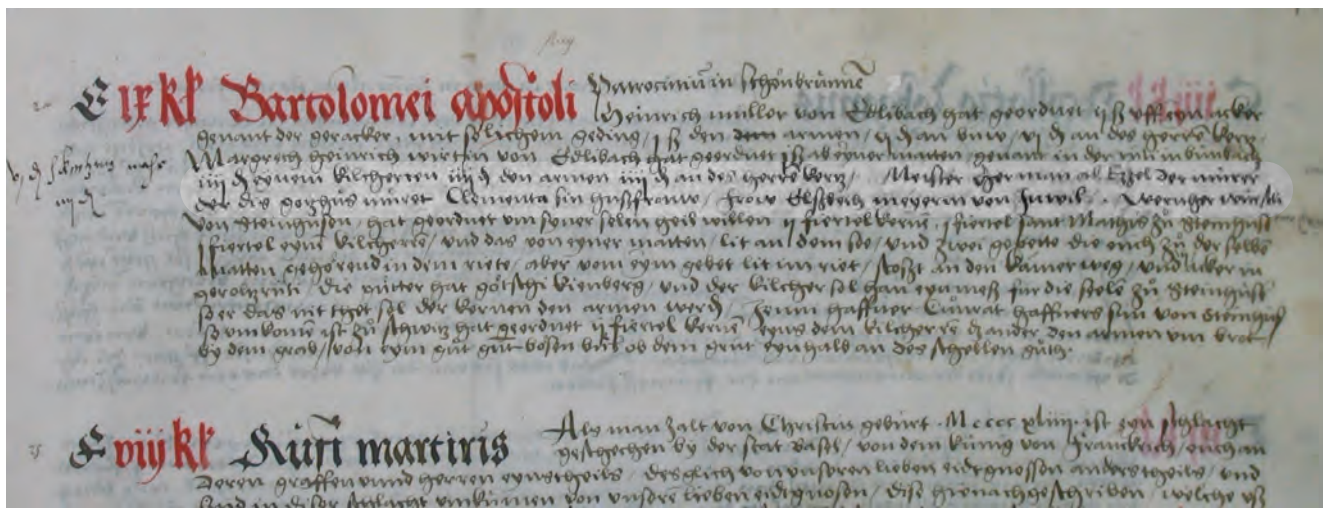 Aug
24 E ix kł Bartolomei apostoli Patrociniū in schönbrunnē
Heinrich müller von Edlibach hat geordnet j ß uff eym acker
genant der geracker, mit solichem geding, j ß den armen, vj d an buw, vj d an des herrē kertz.
Margreth heinrich wirtin von Edlibach hat geordnet j ß ab eyner matten genant in der rüti in binbach
iiij d eynem kilcherren iiij d den armen iiij d an des herrē kertz, Meister herman al Etzel der murer
der dis gozhus muret Clementa sin husfrouw, frow Elsbeth meyerin von Inwil. Wernher
von steinhusen, hat geordnet um syner selen heil willen ij fiertel kernē, j fiertel sant Mathis zů steinhusē
j fiertel eynē kilcherrē, und das von eyner matten, lit an dem see, und zwei gebette die ouch zů der selbē
matten gehörend in dem riete, aber vom eym gebet lit im riet, stoszt an den kamerweg, und acker in
geroltzrüti, die mütter hat götschi bienberg, und der kilcher sol han eyn mesz für die seelē zů steinhusē
so er das nit thet sol der kernen den armen werdē Henni haffner Cůnrat haffners sun von steinhusē
so umkomē ist zů schwitz hat geordnet ij fiertel kernē eyns dem kilcherrē d ander den armen um brot,
by dem grab, von eym gůt gnant bosen büel ob dem grüt eynhalb an des schellen gůth.
25 F viij kł Rufi martiris Als man zalt von Christus gebürt. M cccc xliiij. ist eyn schlacht
geschechen by der stat basel, von dem künig von Franckrich, ouch an
deren graffen unnd herren eynsteils, desglich von unsren lieben eidtgnossen anders theils, und
sind in diser schlacht umkumen von unserē lieben eidignosen, dise hienach geschriben, welche usz